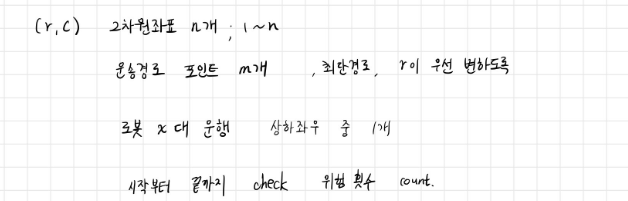 (r,c) 2차원좌표 n개 ; 1~n
운송경로 포인트 m개 , 최단경로, r이 우선 변하도록
로봇 x 대 운행 상하좌우 중 1개
시작부터 끝까지 check 위험 횟수 count.